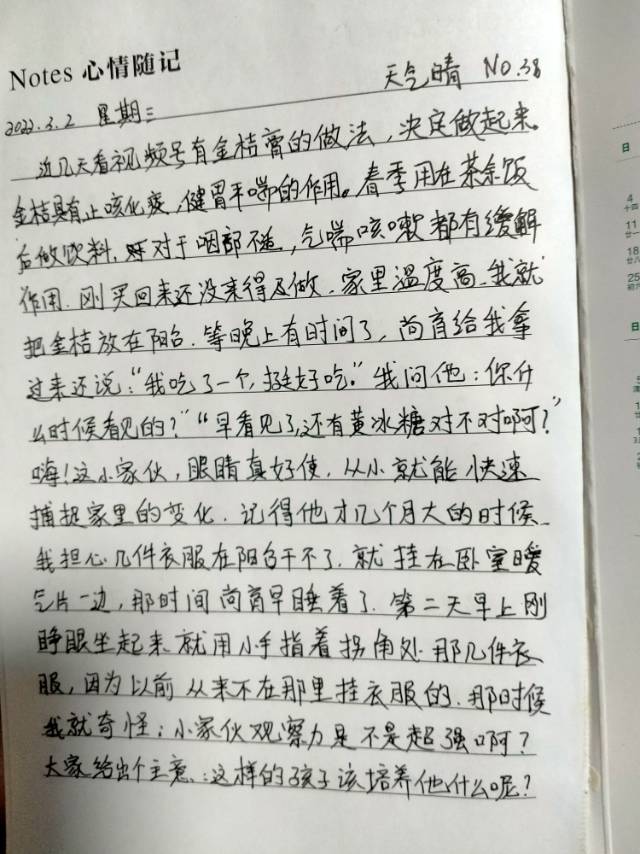 Notes 心情随记
天气晴 NO.38
2022.3.2 星期三
近几天看视频号有金桔膏的做法,决定做起来。
金桔具有止咳化痰,健胃平喘的作用。春季用在茶余饭
后做饮料,对于咽部不适,气喘咳嗽都有缓解
作用.刚买回来还没来得及做.家里温度高.我就
把金桔放在阳台.等晚上有时间了,尚育给我拿
过来还说:“我吃了一个,挺好吃。”我问他:你什
么时候看见的?”“早看见了,还有黄冰糖对不对啊?”
嗨!这小家伙,眼睛真好使.从小就能快速
捕捉家里的变化.记得他才几个月大的时候.
我担心几件衣服在阳台干不了.就挂在卧室暖
气片一边,那时间尚育早睡着了.第二天早上刚
睁眼坐起来就用小手指着拐角处那几件衣
服,因为以前从来不在那里挂衣服的.那时候
我就奇怪:小家伙观察力是不是超强啊?
大家给出个主意.:这样的孩子该培养他什么呢?
日
4
十四
11
廿一
18
廿八
25
初六
日